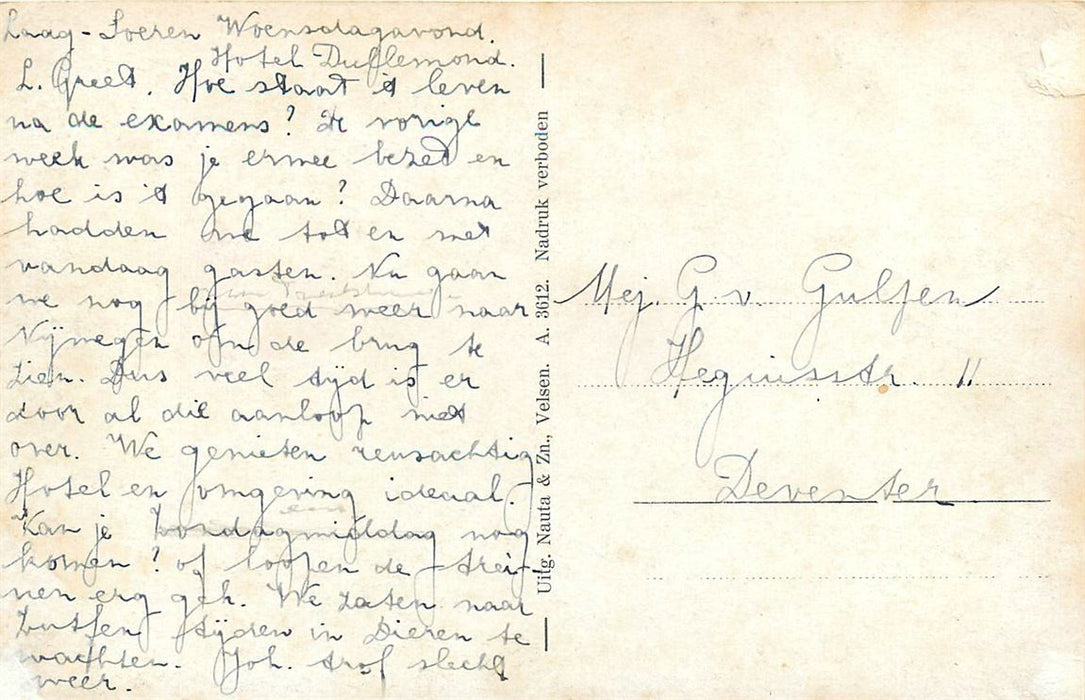 Laag-Soeren Woensdagavond.
Hotel Dullemond.
L. Greet. Hoe staat it leven
na de examens? De vorige
week was je ermee bezet en
hoe is it gegaan? Daarna
hadden we tot en met
vandaag gasten. Nu gaan
we nog bij goed weer naar
Nijmegen om de brug te
zien. Dus veel tijd is er
door al die aanloop niet
over. We genieten reusachtig
Hotel en omgeving ideaal.
een
Kan je Zondagmiddag nog
komen? of loopen de trei-
nen erg gek. We zaten naar
Zutfen tijden in Dieren te
wachten. Joh. trof slecht
weer.
Uitg. Nauta & Zn., Velsen. A. 3612. Nadruk verboden
Mej. G. v. Gulfen
Hegiusstr. 11
Deventer